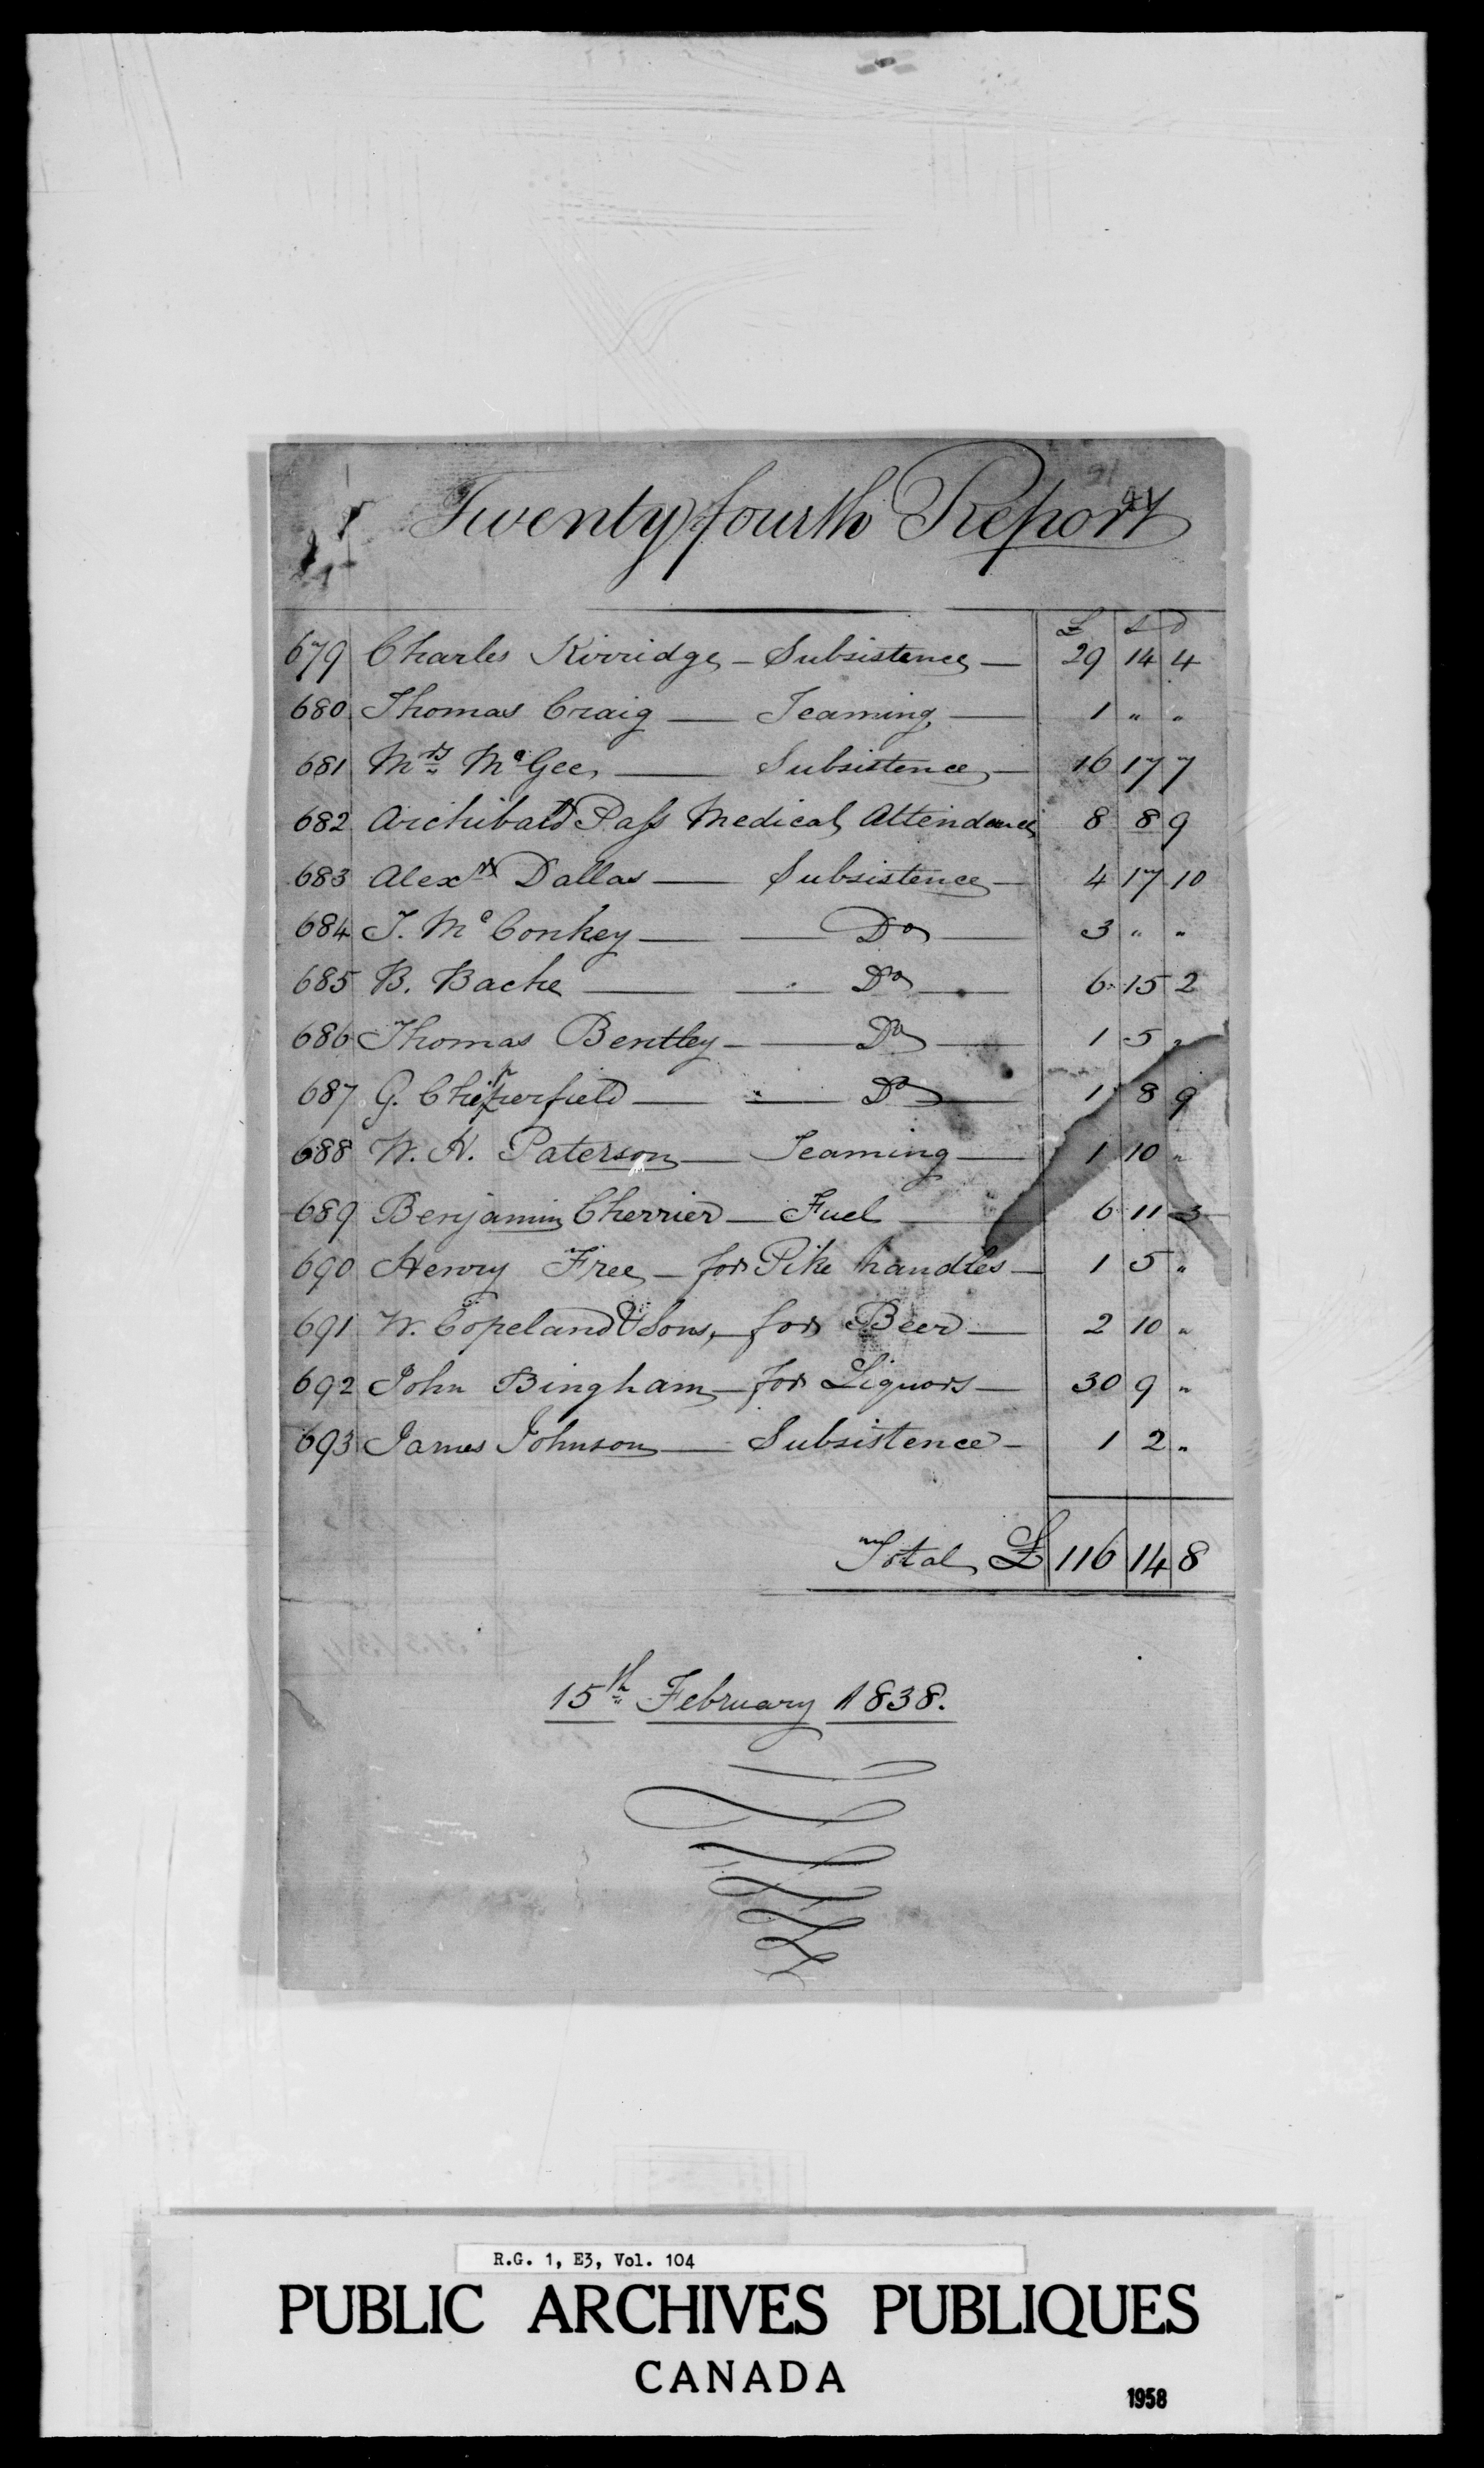 Twenty fourth Report
£ s d
679 Charles Kirridge - Subsistence - 29 14 4
680 Thomas Craig - Teaming - 1 " "
681 Mrs McGee - Subsistence - 16 17 7
682 Archibald Pass Medical Attendance 8 8 9
683 Alexr Dallas - Subsistence - 4 17 10
684 J. McConkey - Do - 3 " "
685 B. Bache - Do - 6 15 2
686 Thomas Bentley - Do - 1 5 "
687 G. Chipperfield - Do - 1 8 9
688 W. H. Paterson - Teaming - 1 10 "
689 Benjamin Cherrier - Fuel - 6 11 3
690 Henry Free - for Pike handles - 1 5 "
691 W. Copeland & Sons, - for Beer - 2 10 "
692 John Bingham - for Liquors - 30 9 "
693 James Johnson - Subsistence - 1 2 "
Total £ 116 14 8
15th February 1838.
R.G. 1, E3, Vol. 104
PUBLIC ARCHIVES PUBLIQUES
CANADA
1958